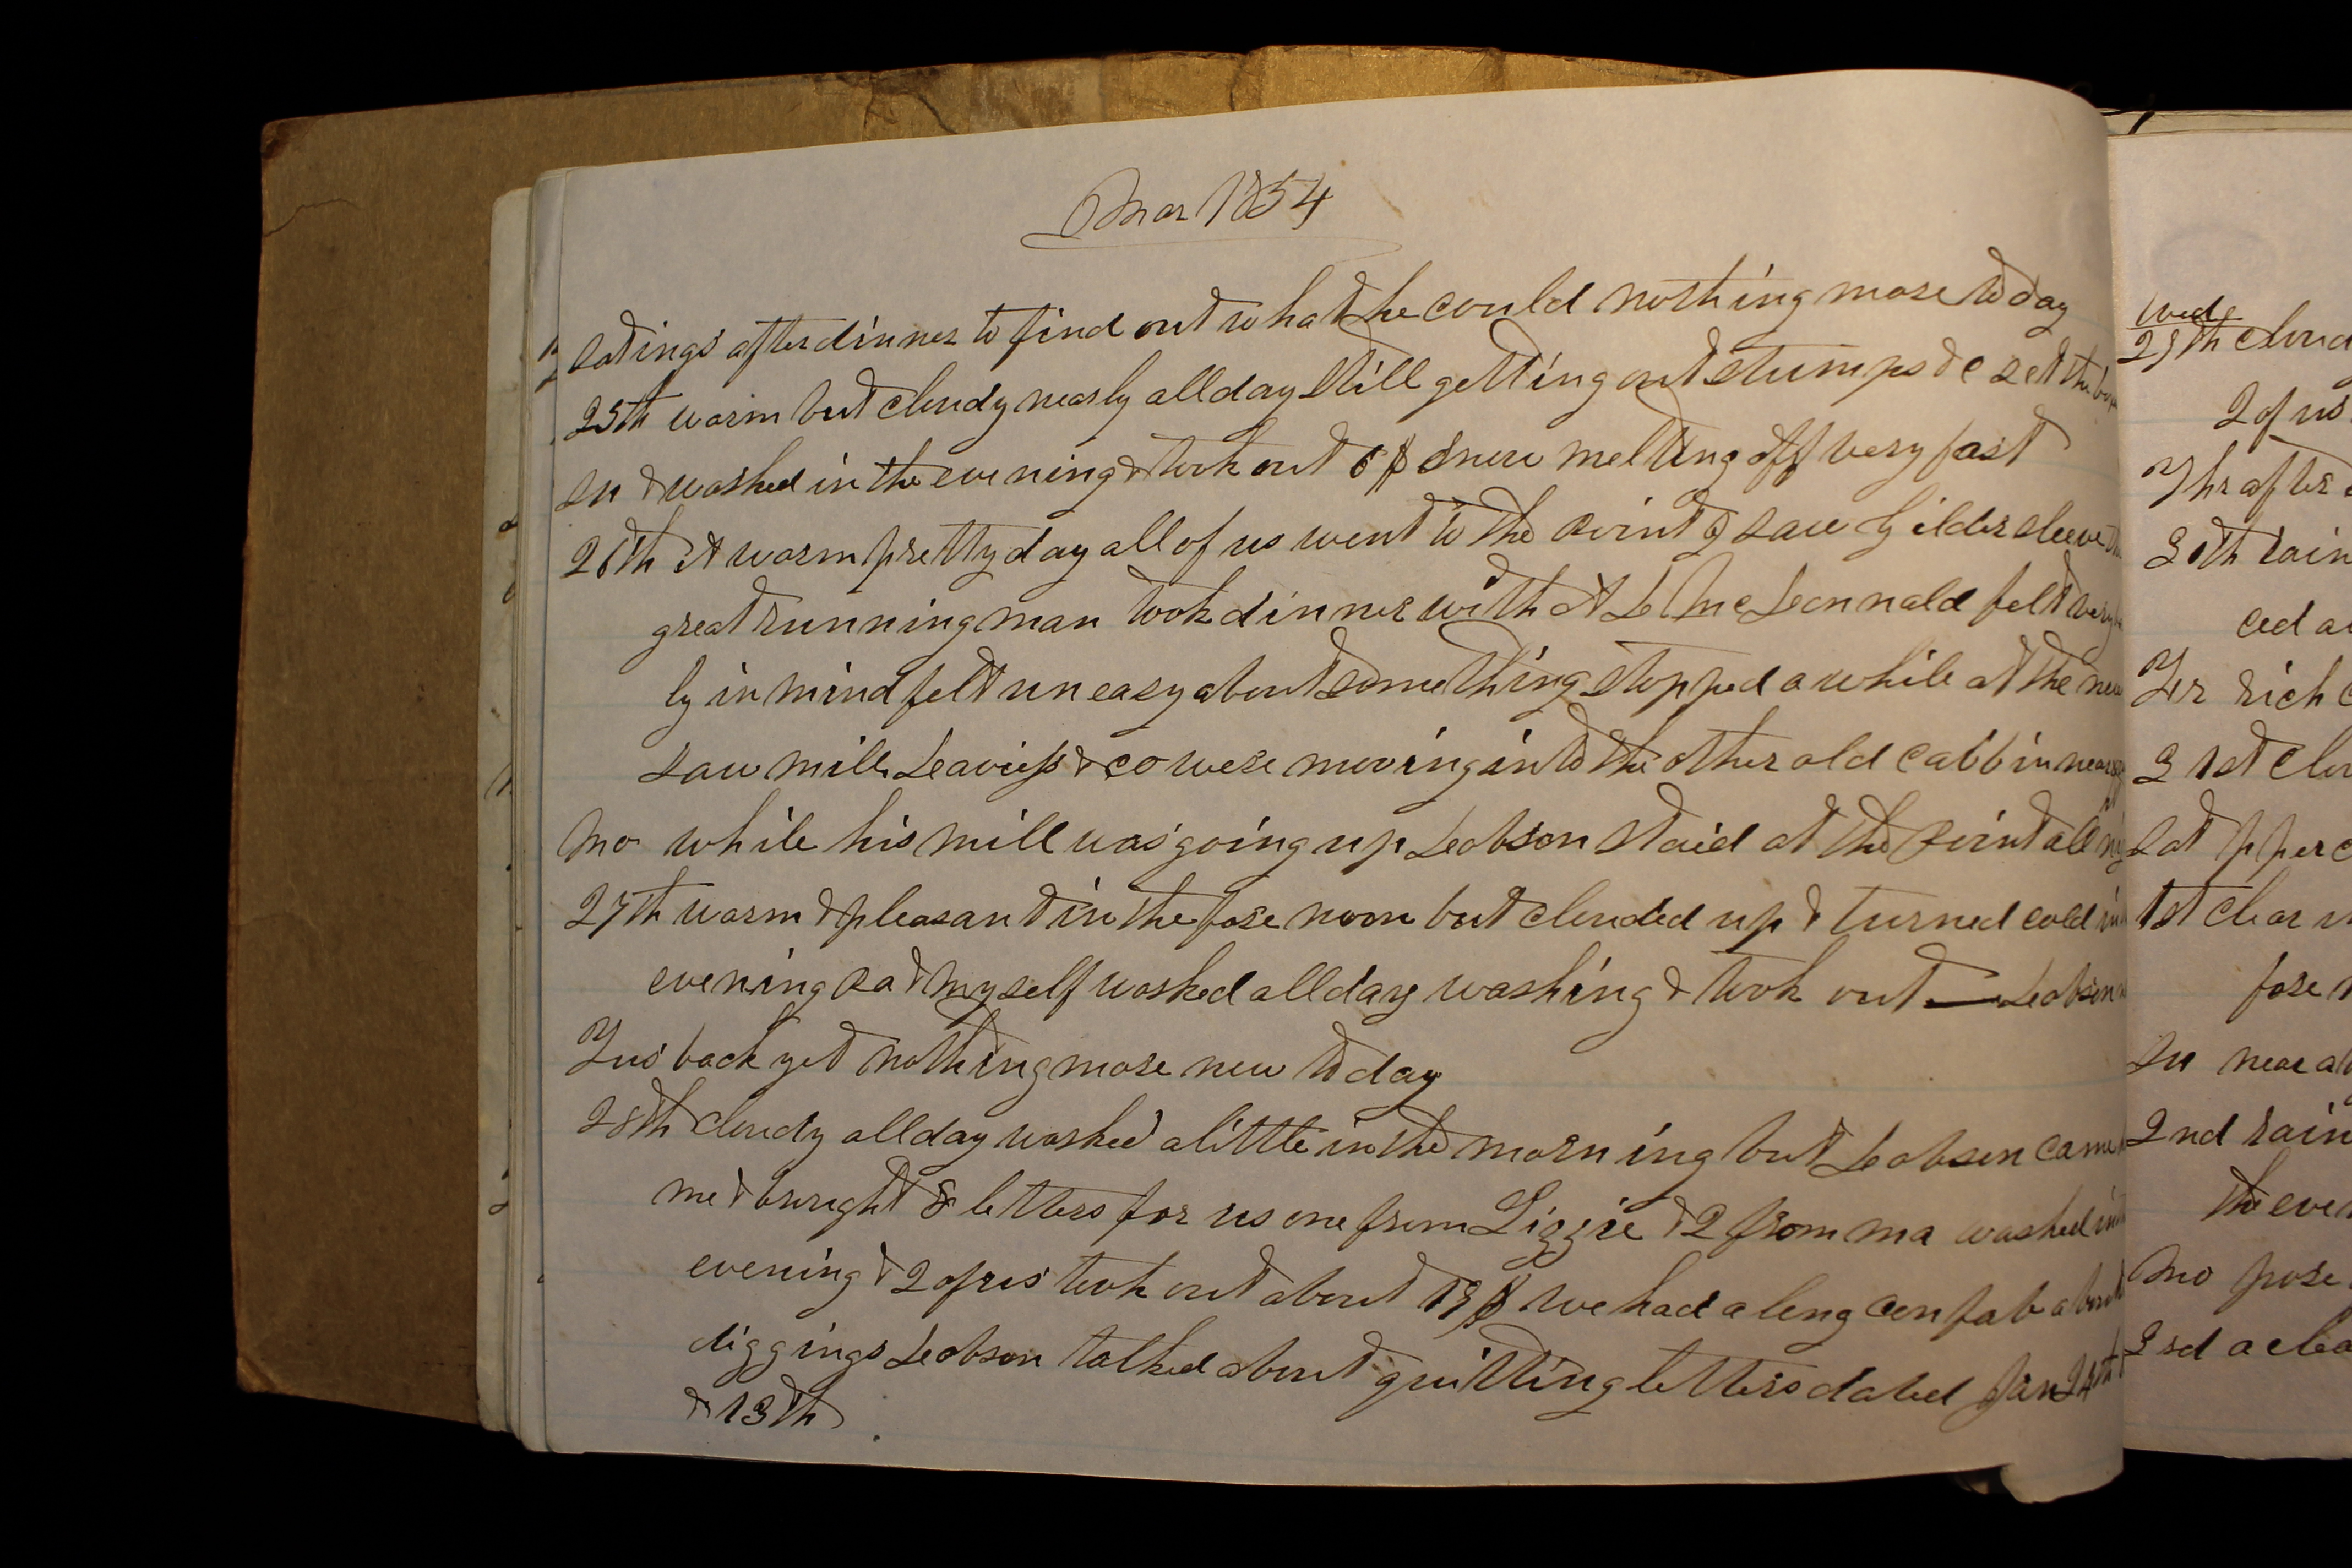 Mar 1854
Sat ings after dinner to find out what he could nothing more to day
25th warm but cloudy nearly all day still getting out stumps &c set the
Su & washed in the evening & took out 6 $ snow melting off very fast
26th A warm pretty day all of us went to the point I saw Gildersleeve the
great running man took dinner with A L McLeonnald felt very
ly in mind felt uneasy about something stopped a while at the new
saw mill & co were moving into the other old cabbin near
Mo while his mill was going up Leobson staid at the point all
27th warm & pleasant in the fore noon but clouded up & turned cold in
evening Pat & myself washed all day washing & took out — Leobson
Tus back yet nothing more new to day
28th cloudy all day washed a little in the morning but Leobson came
me & brought 8 letters for us one from Lizzie & 2 from ma washed in
evening & 2 of us took out about 13 $ we had a long confab about
diggings Leobson talked about quitting letters dated Jan 24th
& 13th
Wed
29th cloud
2 of us
Thr after
30th rain
ced a
Fr rich
31st clou
Sat p per
1st clear
fore
Su near a
2nd rain
the even
Mo pose
3rd a clea